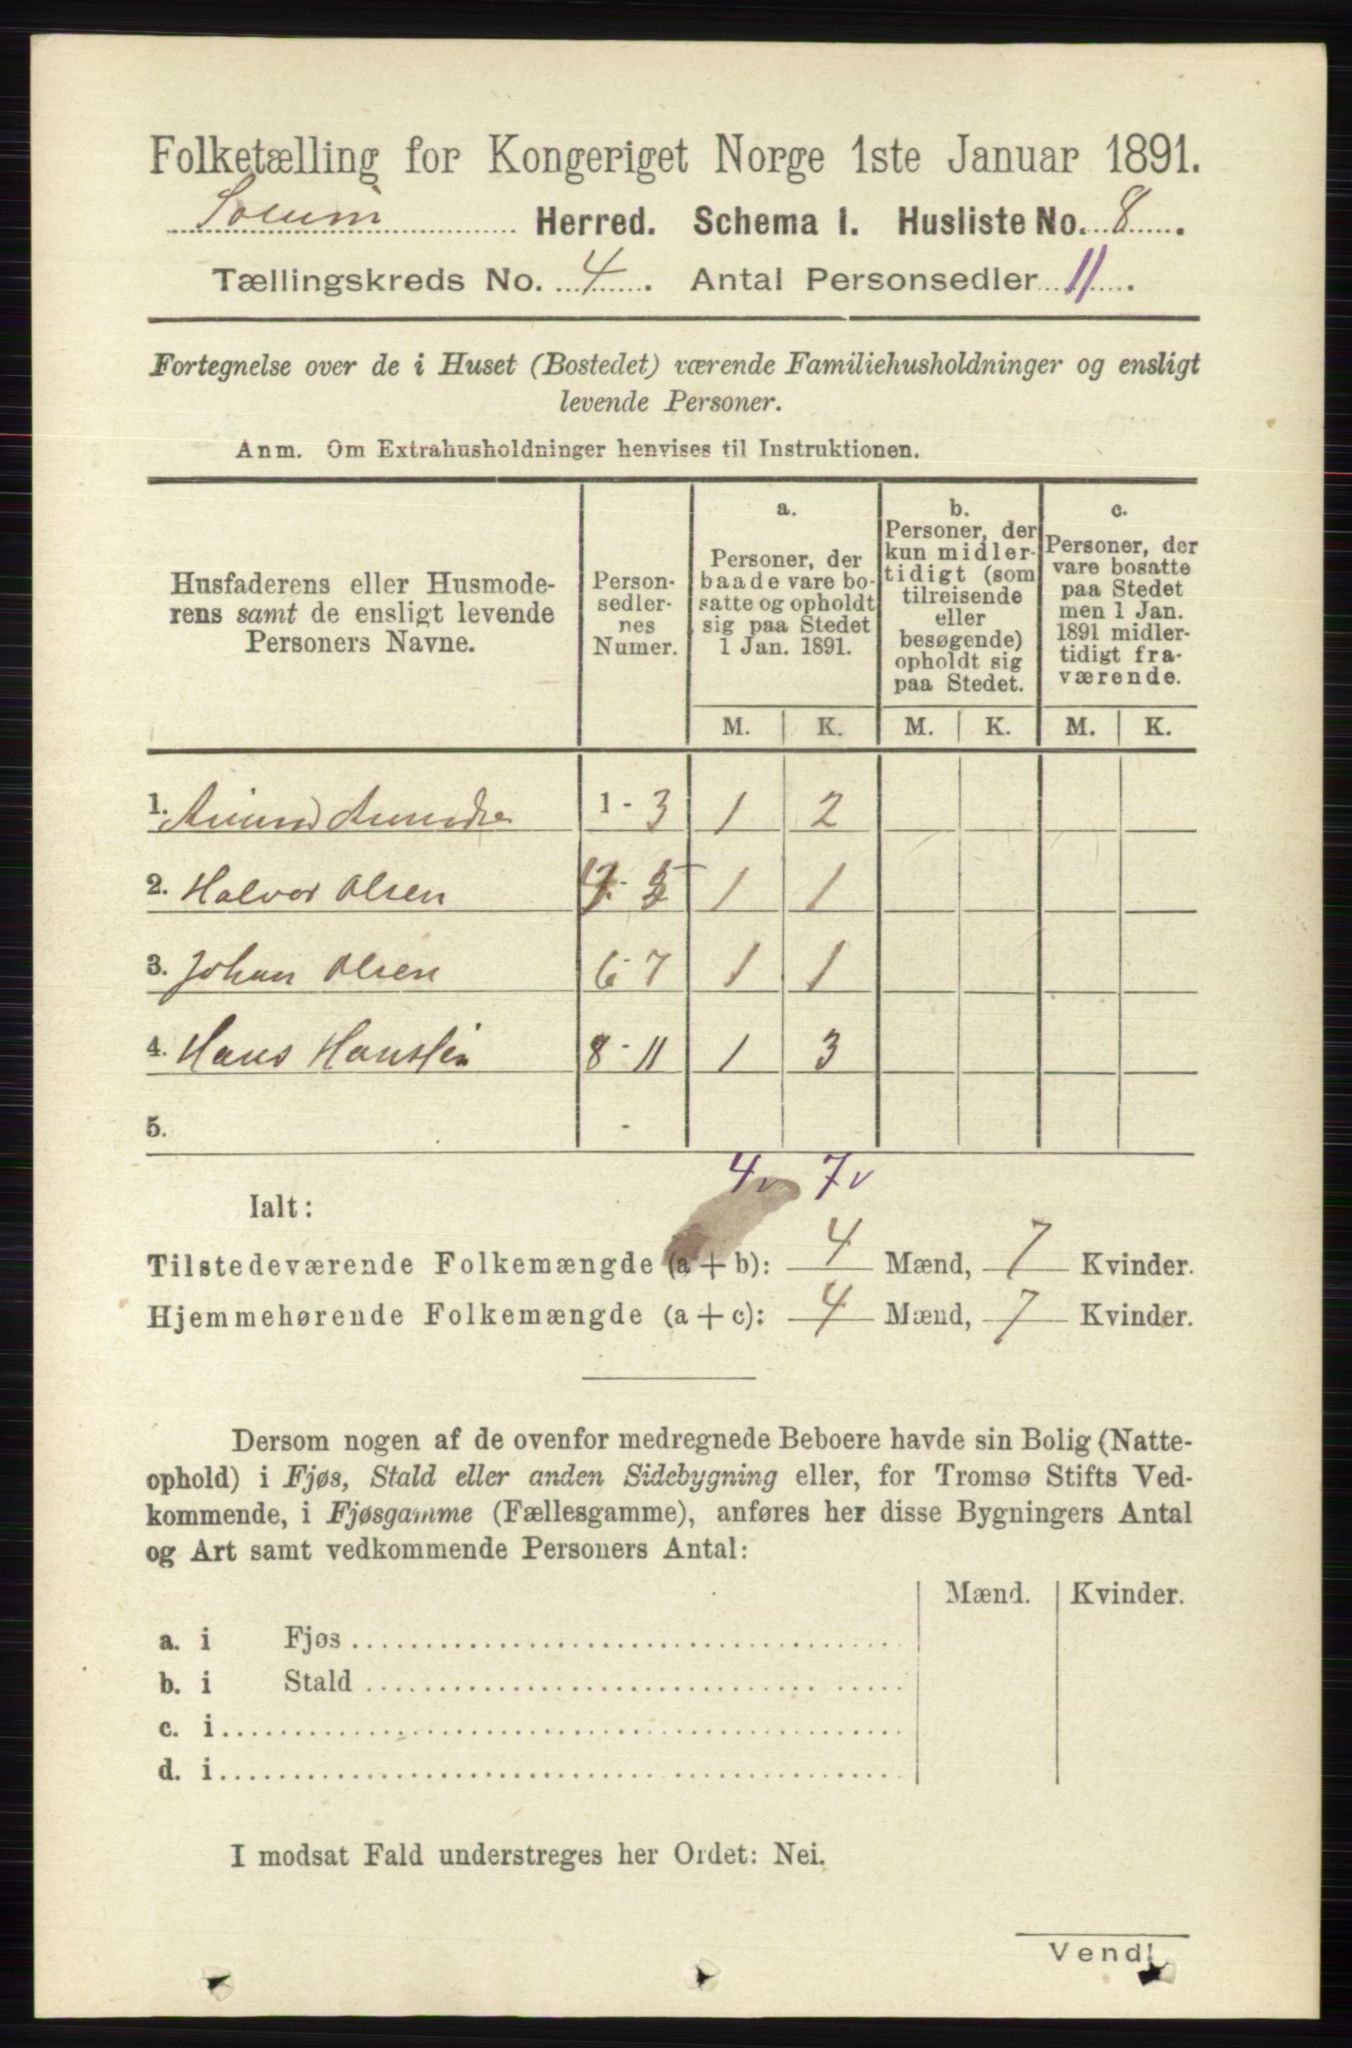 Folketælling for Kongeriget Norge 1ste Januar 1891.
Solum Herred. Schema I. Husliste No. 8.
Tællingskreds No. 4. Antal Personsedler 11.
Fortegnelse over de i Huset (Bostedet) værende Familiehusholdninger og ensligt
levende Personer.
Anm. Om Extrahusholdninger henvises til Instruktionen.
Husfaderens eller Husmode-
rens samt de ensligt levende
Personers Navne.
Person-
sedler-
nes
Numer.
a.
Personer, der
baade vare bo-
satte og opholdt
sig paa Stedet
1 Jan. 1891.
b.
Personer, der
kun midler-
tidigt (som
tilreisende
eller
besøgende)
opholdt sig
paa Stedet.
c.
Personer, der
vare bosatte
paa Stedet
men 1 Jan.
1891 midler-
tidigt fra-
værende.
M. K. M. K. M. K.
1. 1 - 3 1 2
2. Halvor Olsen 4 - 5 1 1
3. Johan Olsen 6 - 7 1 1
4. Hans 8 - 11 1 3
5. -
4v 7v
Ialt:
Tilstedeværende Folkemængde (a + b): 4 Mænd, 7 Kvinder.
Hjemmehørende Folkemængde (a + c): 4 Mænd, 7 Kvinder.
Dersom nogen af de ovenfor medregnede Beboere havde sin Bolig (Natte-
ophold) i Fjøs, Stald eller anden Sidebygning eller, for Tromsø Stifts Ved-
kommende, i Fjøsgamme (Fællesgamme), anføres her disse Bygningers Antal
og Art samt vedkommende Personers Antal:
Mænd. Kvinder.
a. i Fjøs
b. i Stald
c. i
d. i
I modsat Fald understreges her Ordet: Nei.
Vend!